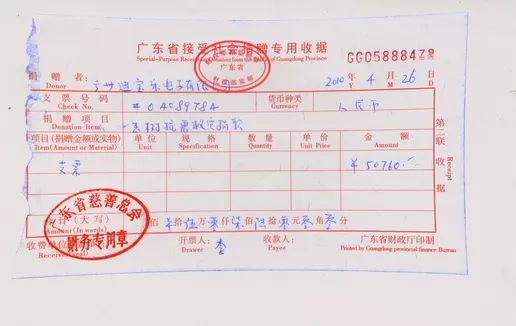 广东省接受社会捐赠专用收据
GG05888478
广东省
财政部监制
捐赠者: 广州迪宝乐电子有限公司 2010 年 4 月 26 日
Donor Y M D
支票号码 #04089784 货币种类 人民币
Check No. Currency
捐赠项目 玉树抗震救灾捐款
Donation Item
项目(捐赠金额或实物) 单位 规格 数量 单价 金额
Item(Amount or Material) Unit Specification Quantity Unit Price Amount
支票 ¥50760.-
计(大写) 佰 拾 伍 万 零 仟 柒 佰 陆 拾 零 元 零 角 零 分
Amount(In words)
广东省慈善总会
财务专用章
收费单 开票人: 李 收款人: 广东省财政厅印制
Received( Drawer Payee Printed by Guangdong provincial finance Bureau
第二联 收据
Receipt